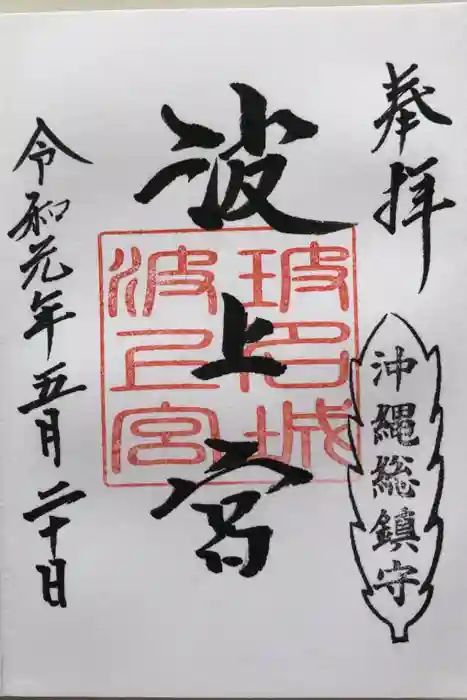 奉拝
沖縄総鎮守
波上宮
玻名城
波上宮
令和元年五月二十日